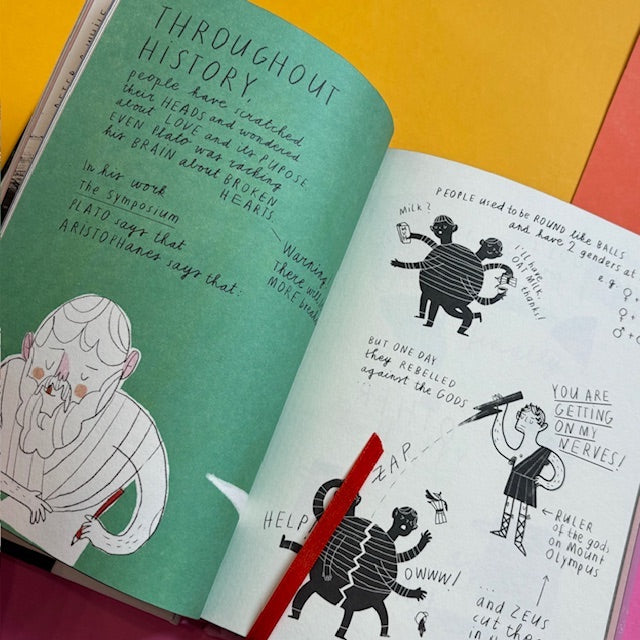 AFTER A WHILE
THROUGHOUT
HISTORY
people have scratched
their HEADS and wondered
about LOVE and its PUPOSE
EVEN Plato was racking
his BRAIN about BROKEN
HEARTS.
In his work
The Symposium
PLATO says that
ARISTOPHanes says that:
Warning
There will
MORE
PEOPLE used to be ROUND like BALLS
and have 2 genders at
e.g. ♀
♀ +
♂ +
Milk?
I'll have
OAT MILK,
thanks!
BUT ONE DAY
they REBELLED
against the GODS
...
YOU ARE
GETTING
ON MY
NERVES!
ZAP
HELP
OWWW!
← RULER
of the gods
on Mount
Olympus
...
and ZEUS
cut the
in